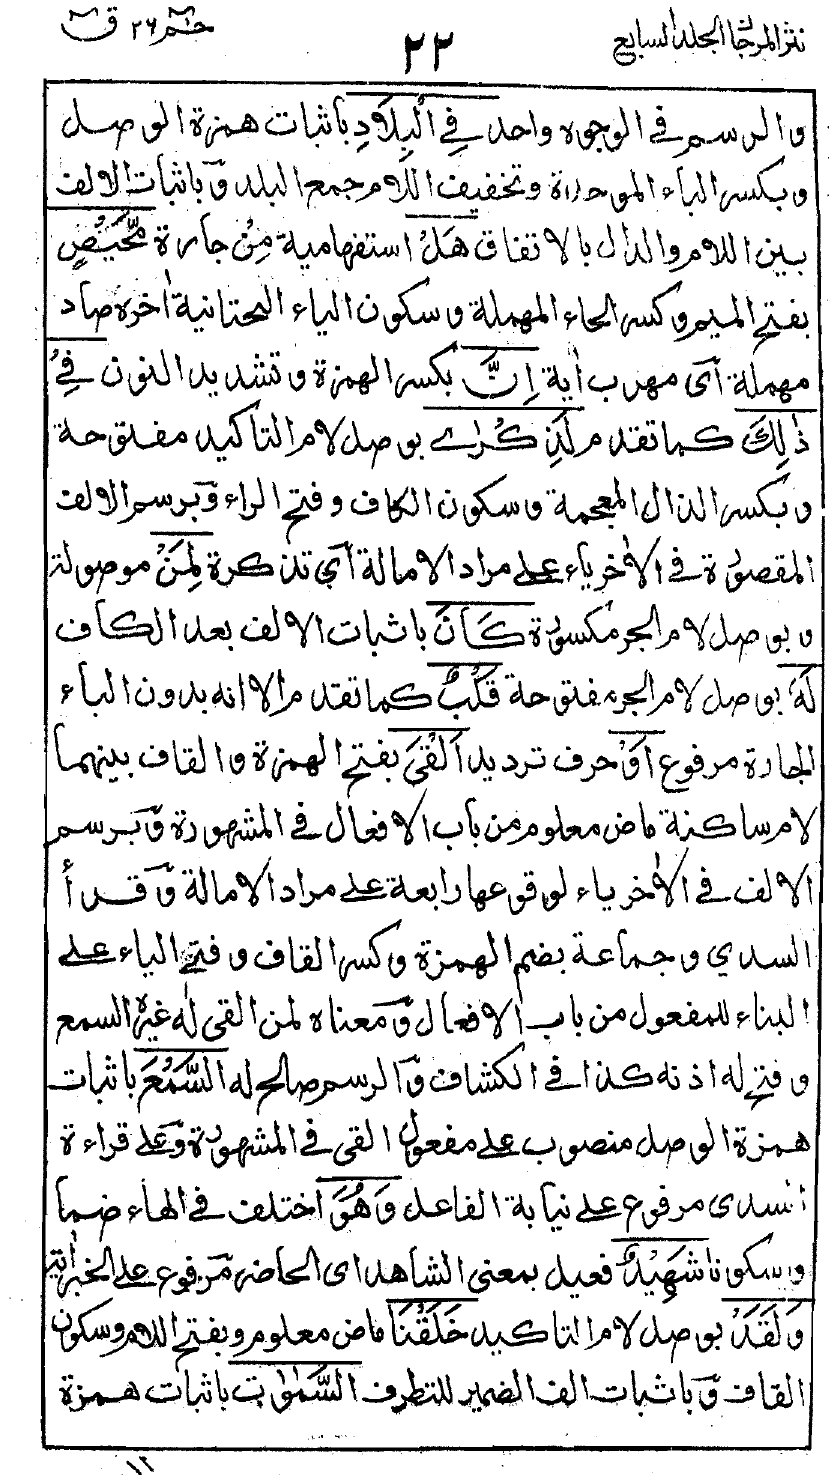 نثر المرجان المجلد السابع
٢٢
حٰم ٢٦ ق
والرسم فى الوجوه واحد فِي الْبِلَادِ باثبات همزة الوصل
وبكسر الباء الموحدة وتخفيف اللام جمع البلد وباثبات الالف
بين اللام والدال بالاتفاق هَلْ استفهامية مِنْ جارة مَّحِيْصٍ
بفتح الميم وكسر الحاء المهملة وسكون الياء التحتانية اٰخره صاد
مهملة آى مهرب اٰية اِنَّ بكسر الهمزة وتشديد النون فِيْ
ذٰلِكَ كما تقدم لَذِكْرٰى بوصل لام التاكيد مفتوحة
وبكسر الذال المعجمة وسكون الكاف وفتح الراء وبرسم الالف
المقصورة فى الاٰخر ياء على مراد الامالة آي تذكرة لِمَنْ موصولة
وبوصل لام الجر مكسورة كَانَ باثبات الالف بعد الكاف
لَهٗ بوصل لام الجر مفتوحة قَلْبٌ كما تقدم الا انه بدون الباء
الجارة مرفوع اَوْ حرف ترديد اَلْقَى بفتح الهمزة والقاف بينهما
لام ساكنة ماض معلوم من باب الافعال فى المشهورة وبرسم
الالف فى الاٰخر ياء لوقوعها رابعة على مراد الامالة وقرأ
السدي وجماعة بضم الهمزة وكسر القاف وفتح الياء على
البناء للمفعول من باب الافعال ومعناه لمن القى له غيره السمع
وفتح له اذنه كذا فى الكشاف والرسم صالح له السَّمْعَ باثبات
همزة الوصل منصوب على مفعول القى فى المشهورة وعلى قراءة
السدى مرفوع على نيابة الفاعل وَهُوَ اختلف فى الهاء ضما
وسكونا شَهِيْدٌ فعيل بمعنى الشاهد اى الحاضر مرفوع على الخبر اٰية
وَلَقَدْ بوصل لام التاكيد خَلَقْنَا ماض معلوم وبفتح اللام وسكون
القاف وباثبات الف الضمير للتطرف السَّمٰوٰتِ باثبات همزة
١٢